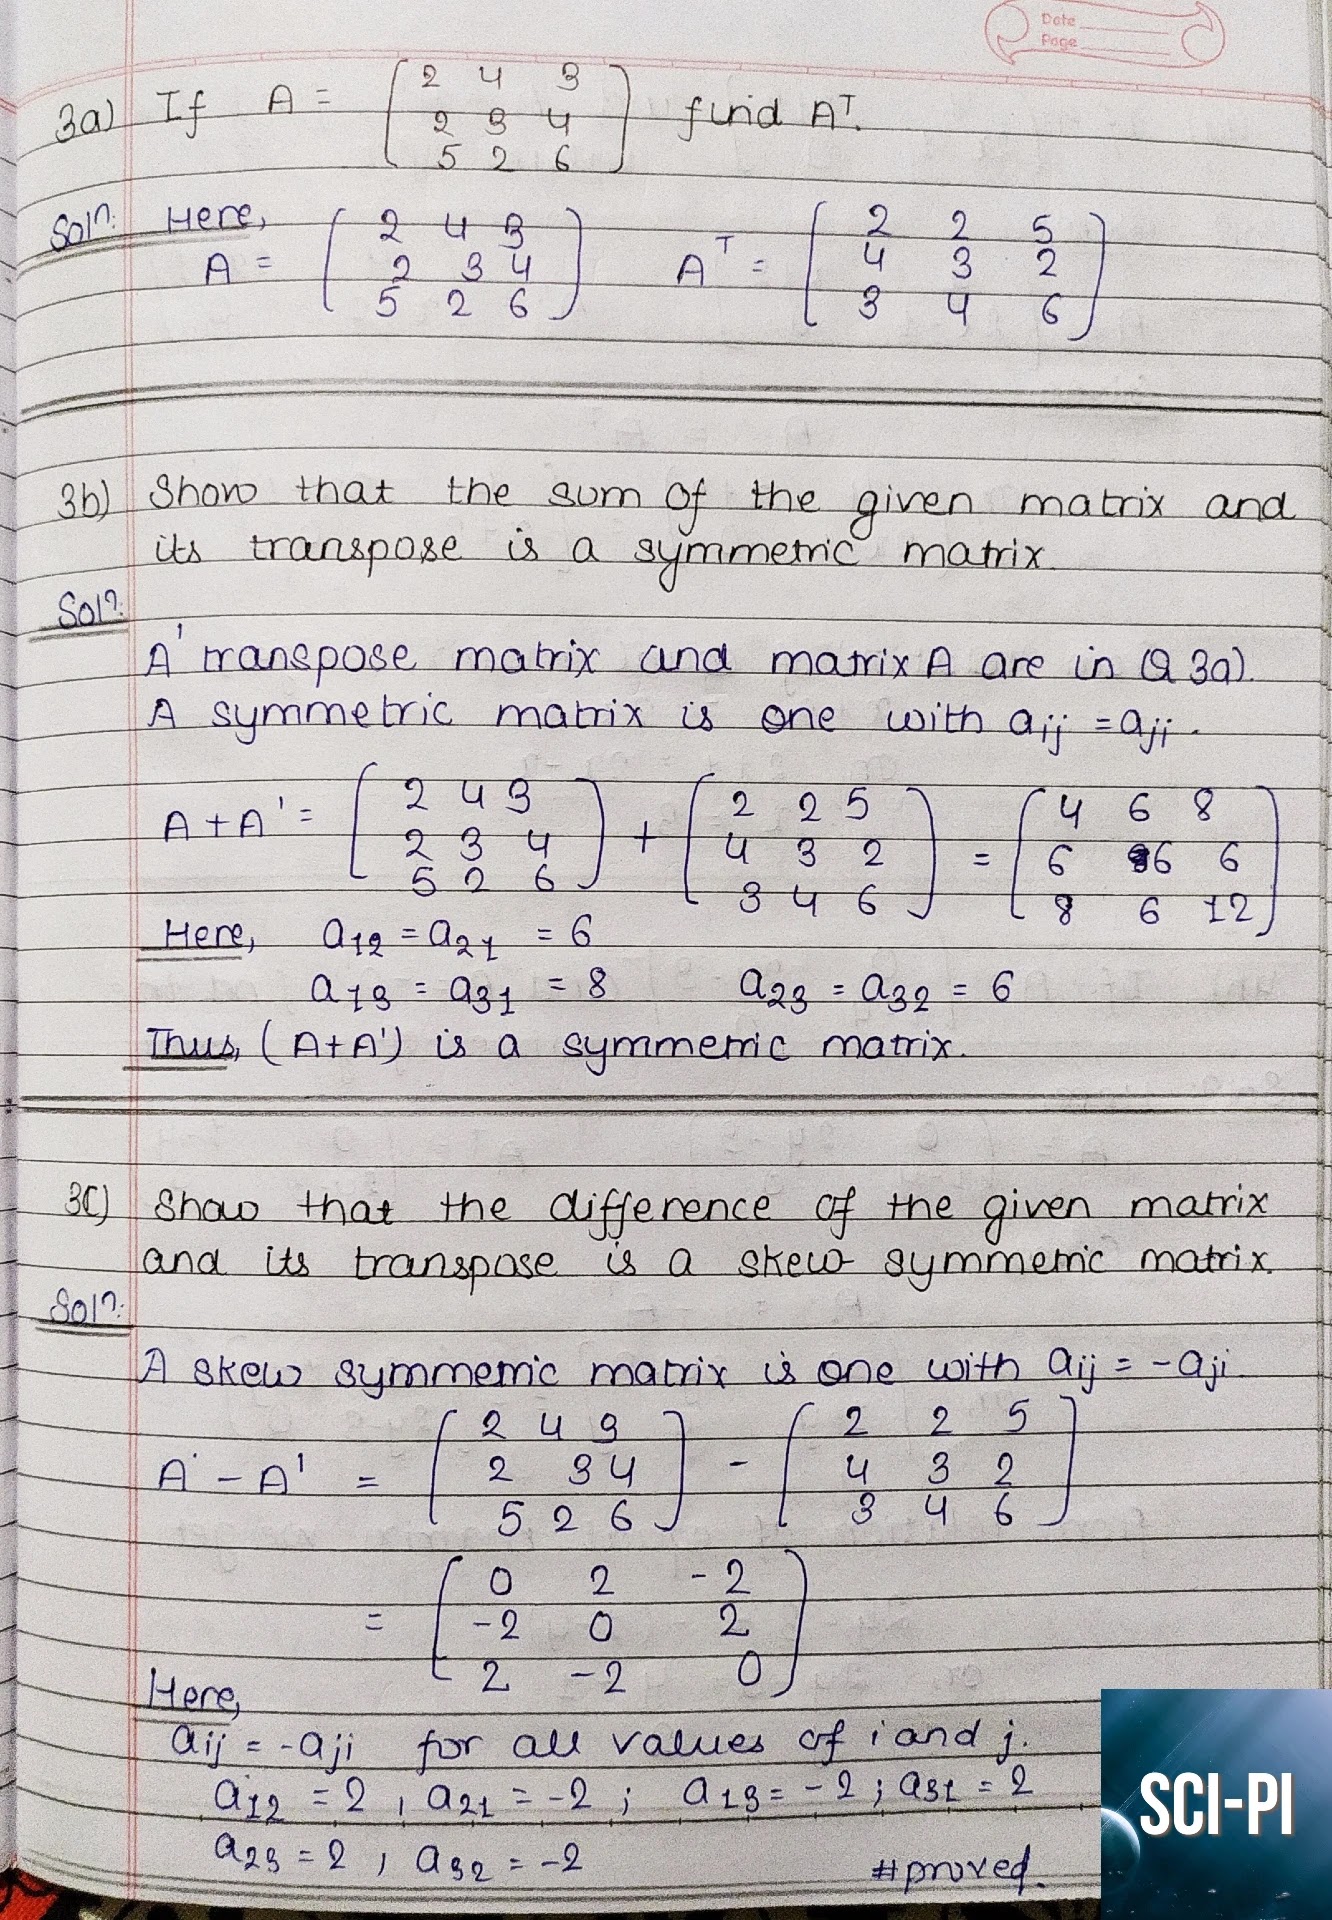 Date
Page
3a) If A = [ 2 4 3 ] find Aᵀ.
2 3 4
5 2 6
Solⁿ: Here,
A = [ 2 4 3 ] Aᵀ = [ 2 2 5 ]
2 3 4 4 3 2
5 2 6 3 4 6
3b) Show that the sum of the given matrix and
its transpose is a symmetric matrix
Solⁿ:
A' transpose matrix and matrix A are in Q 3a).
A symmetric matrix is one with aij = aji.
A + A' = [ 2 4 3 ] + [ 2 2 5 ] = [ 4 6 8 ]
2 3 4 4 3 2 6 6 6
5 2 6 3 4 6 8 6 12
Here, a12 = a21 = 6
a13 = a31 = 8 a23 = a32 = 6
Thus, (A+A') is a symmetric matrix.
3c) Show that the difference of the given matrix
and its transpose is a skew symmetric matrix.
Solⁿ:
A skew symmetric matrix is one with aij = -aji.
A - A' = [ 2 4 3 ] - [ 2 2 5 ]
2 3 4 4 3 2
5 2 6 3 4 6
= [ 0 2 -2 ]
-2 0 2
2 -2 0
Here,
aij = -aji for all values of i and j.
a12 = 2, a21 = -2 ; a13 = -2 ; a31 = 2
a23 = 2, a32 = -2
#proved.
SCI-PI